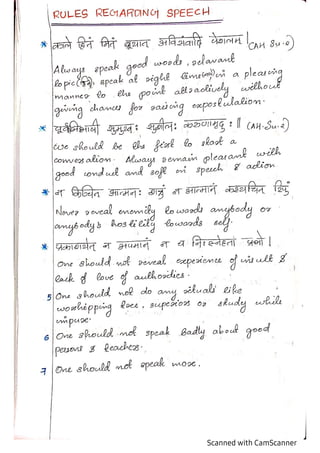 RULES REGARDING SPEECH
* काले हितं मितं ब्रूयात् अविसंवादि पेशलम् | (AH Su-2)
Always speak good words, relavant
topic, speak at right time in a pleasing
manner to the point attractively without
giving chances for raising expostulation.
* पूर्वाभिभाषी सुमुखः सुशीलः करुणामृदुः || (AH-Su-2)
We should be the first to start a
conversation. Always remain pleasant with
good conduct and soft in speech & action.
* न कंचित् आत्मनः शत्रुं न आत्मानं कस्यचित् रिपुं
Never reveal enemity towards anybody or
anybody's hostility towards self.
* प्रकाशयेत् न अपमानं न च निःस्नेहतां प्रभोः |
One should not reveal experience of insult &
lack of love of authorities.
5 One should not do any rituals like
worshipping tree, superior or study while
impure.
6 One should not speak badly about good
persons & teachers.
7 One should not speak more.
Scanned with CamScanner